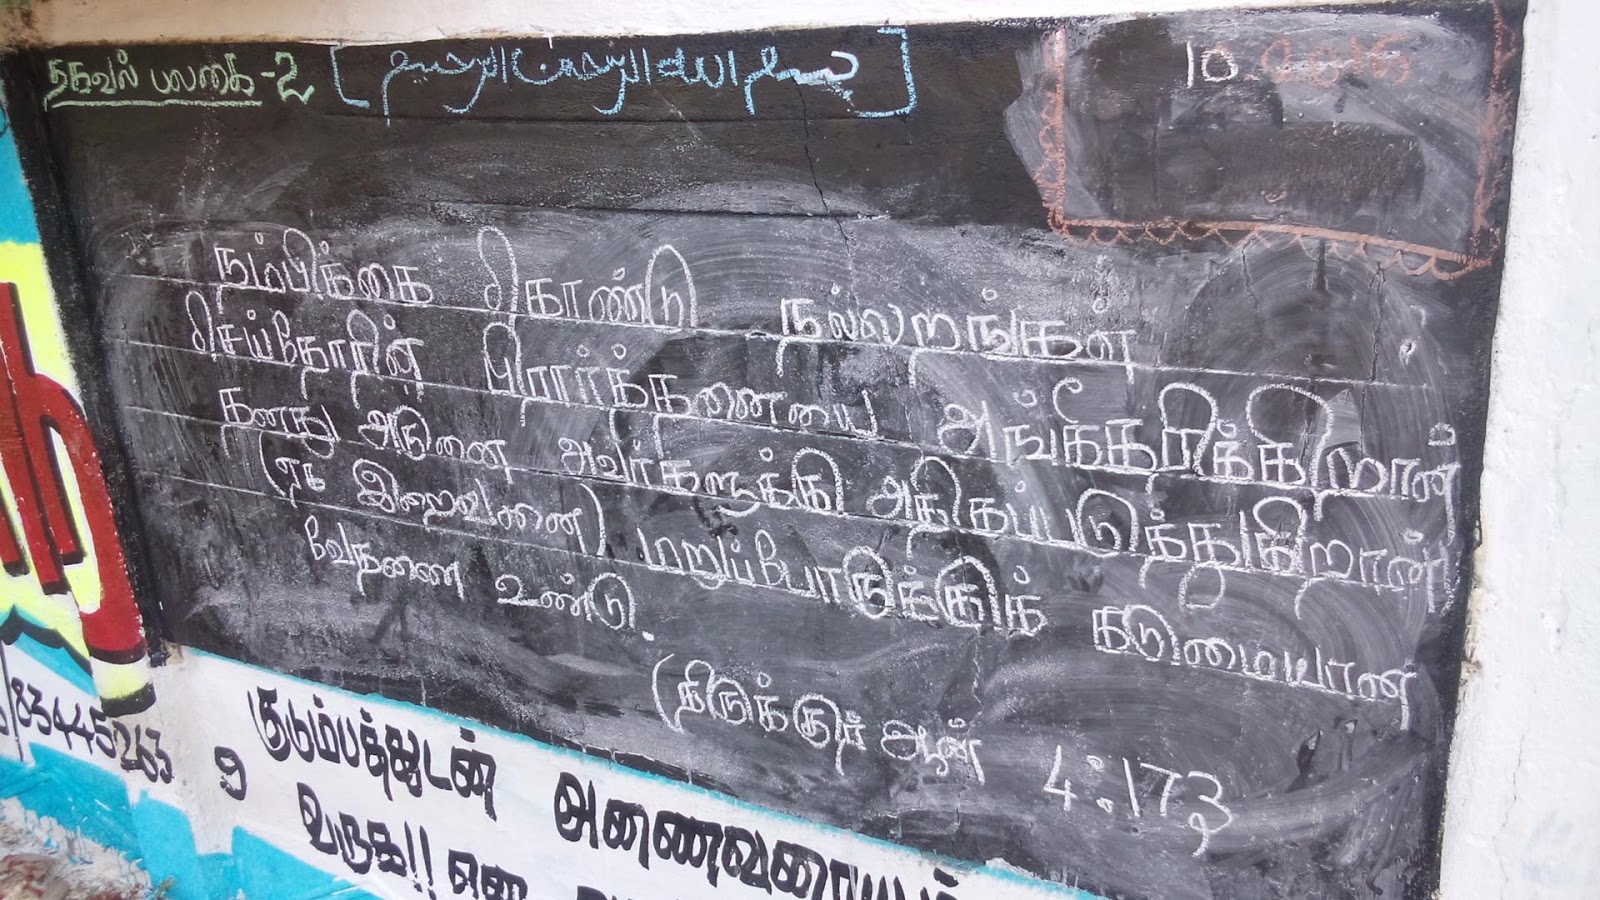 தகவல் பலகை -2
10
நம்பிக்கை கொண்டு நல்லறங்கள்
செய்தோரின் பிரார்த்தனையை அங்கீகரிக்கிறான்
தனது அருளை அவர்களுக்கு அதிகப்படுத்துகிறான்
(ஏக இறைவனை) மறுப்போருக்குக் கடுமையான
வேதனை உண்டு.
(திருக்குர் ஆன் 4:173
/834445263
குடும்பத்துடன் அனைவரையும்
வருக!! என